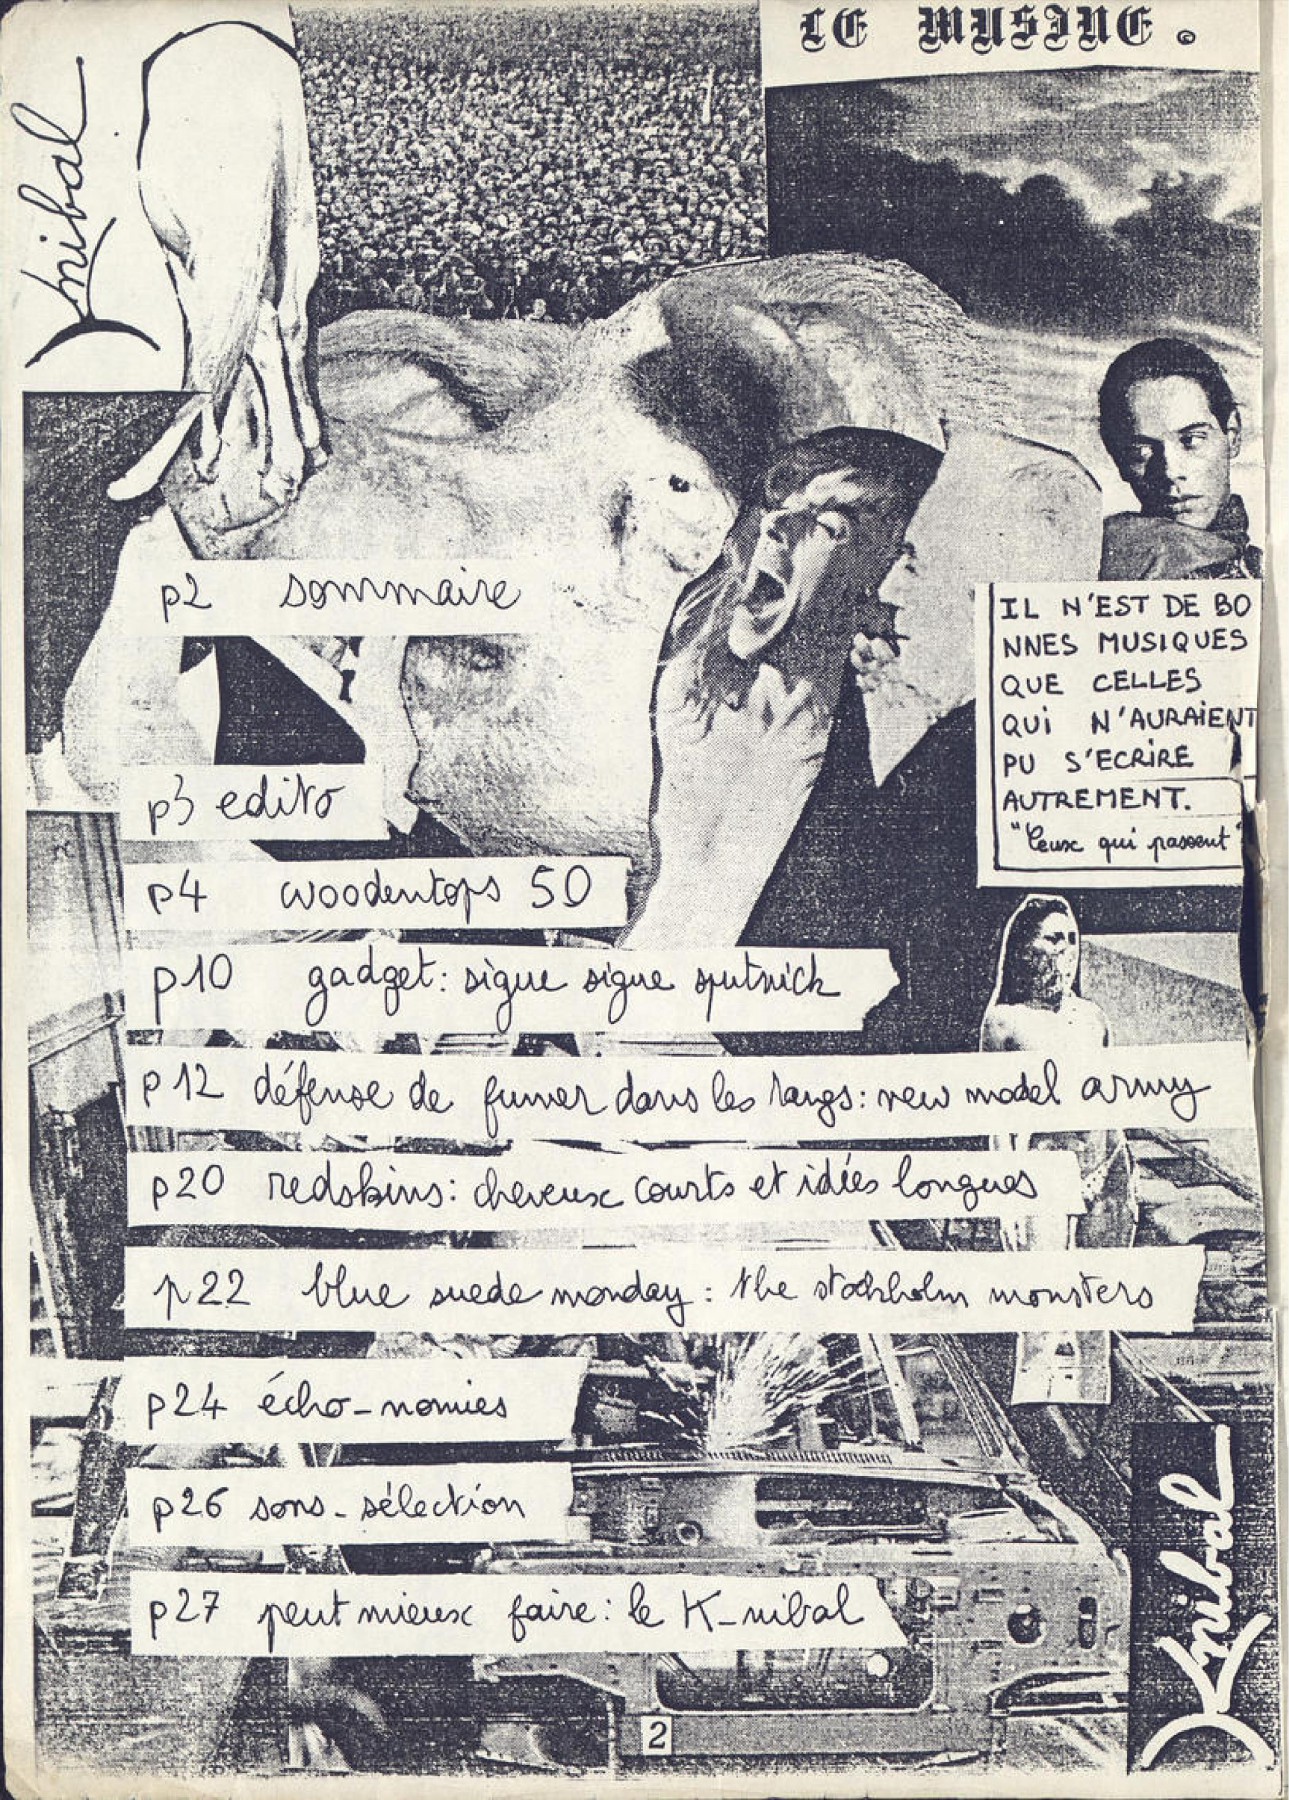 LE MUSINE.
Knibal
p2 sommaire
IL N'EST DE BO
NNES MUSIQUES
QUE CELLES
QUI N'AURAIENT
PU S'ECRIRE
AUTREMENT.
"Ceux qui passent"
p3 edito
p4 woodentops 50
p10 gadget: sigue sigue sputnick
p12 défense de fumer dans les rangs: new model army
p20 redskins: cheveux courts et idées longues
p22 blue suede monday: the stockholm monsters
p24 écho-nomies
p26 sons-sélection
p27 peut mieux faire: le K-nibal
Knibal
2